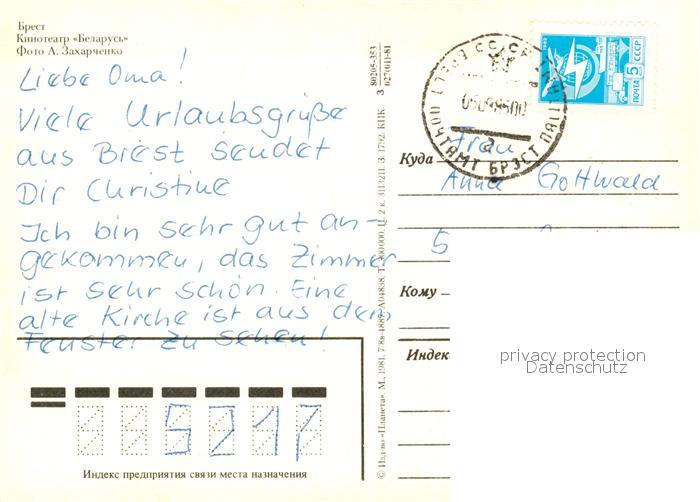 Брест
Кинотеатр «Беларусь»
Фото А. Захарченко
Liebe Oma!
Viele Urlaubsgrüße
aus Brest sendet
Dir Christine
Ich bin sehr gut an-
gekommen, das Zimmer
ist sehr schön. Eine
alte Kirche ist aus dem
Fenster zu sehen!
5217
Индекс предприятия связи места назначения
80205-353
3 027(01)-81
© Изд-во «Планета». М., 1981.
З. 1792. КПК
СССР
ПОЧТАМТ БРЭСТ
ПОЧТА 5 СССР
Куда
Frau
Anna Gottwald
5
Кому
Индекс
privacy protection
Datenschutz